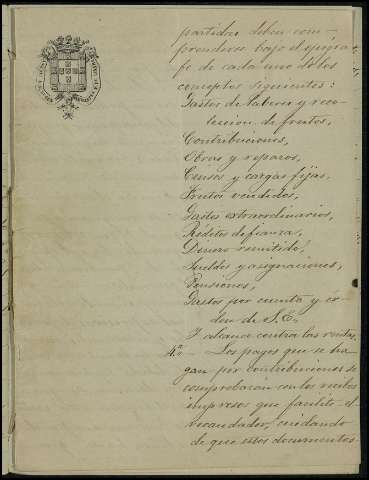 partidas deben com-
prenderse bajo el epígra-
fe de cada uno de los
conceptos siguientes:
Gastos de labores y reco-
leccion de frutos,
Contribuciones,
Obras y reparos,
Censos y cargas fijas,
Frutos vendidos,
Gastos extraordinarios,
Réditos de fianza,
Dinero remitido,
Sueldos y asignaciones,
Pensiones,
Gastos por cuenta y ór-
den de S.E.
Y alcance contra las rentas.
4ª — Los pagos que se ha-
gan por contribuciones se
comprobarán con los recibos
impresos que facilite el
recaudador, cuidando
de que estos documentos